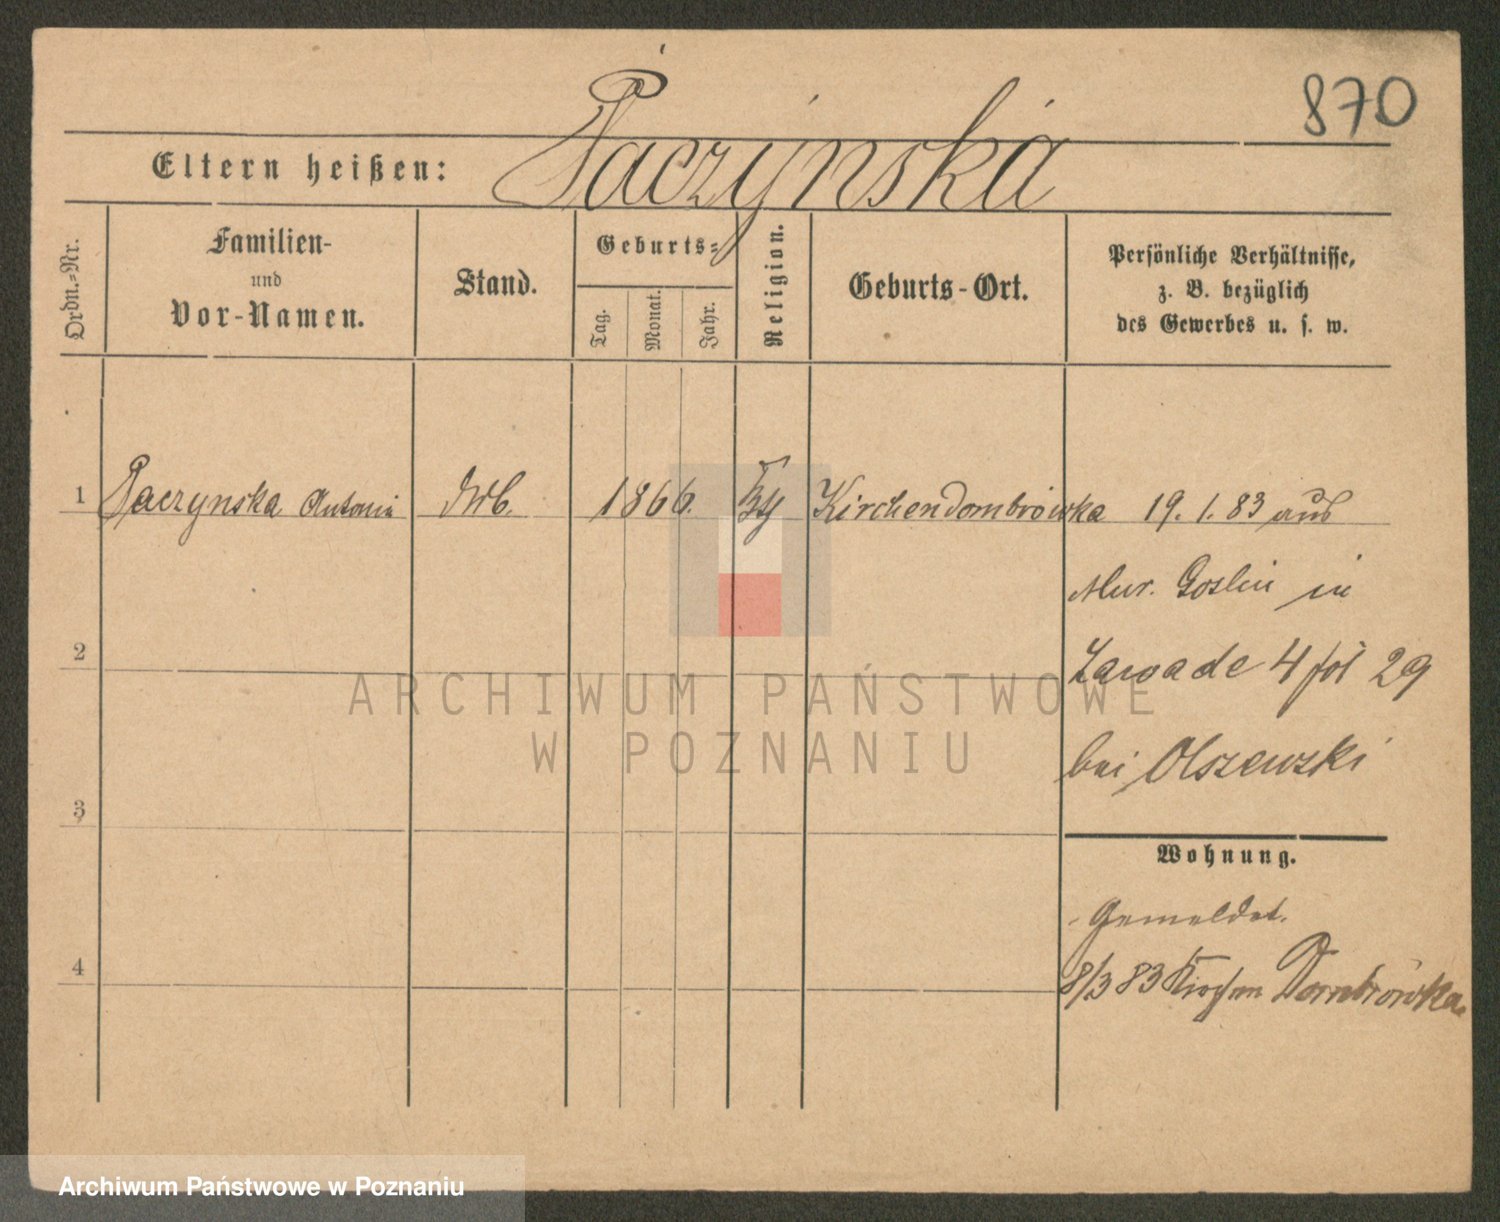 870
Eltern heißen: Paczynska
Ordn.-Nr.
Familien-
und
Vor-Namen.
Stand.
Geburts-
Tag.
Monat.
Jahr.
Religion.
Geburts-Ort.
Persönliche Verhältnisse,
z. B. bezüglich
des Gewerbes u. s. w.
1 Paczynska Antonie 1866. Kirchendombrówka 19. 1. 83 aus
Mur. Goslin in
Zawade 4 fol 29
bei Olszewski
2
3
4
Wohnung.
Gemeldet.
8/3 83 Kirchen Dombrówka
ARCHIWUM PAŃSTWOWE
W POZNANIU
Archiwum Państwowe w Poznaniu